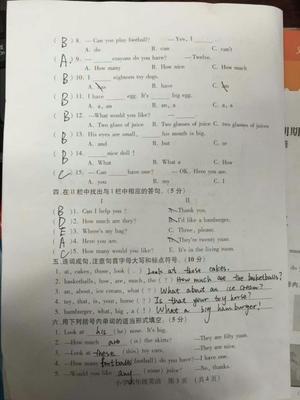 ( B ) 8. —Can you play football? —Yes, I ______.
A. do B. can C. can't
( A ) 9. —______ crayons do you have? —Twelve.
A. How many B. How nice C. How much
( B ) 10. I ______ eighteen toy dogs.
B. have
( B ) 11. I have ______ egg. It's ______ big egg.
A. a, an B. an, a C. a, a
( B ) 12. —What would you like? —______
A. Two glass of juice B. Two glasses of juice C. two glasses of juices
( B ) 13. His eyes are small, ______ his mouth is big.
A. and B. but C. or
( B ) 14. ______ nice doll!
A. What B. What a C. How
( C ) 15. —Can ______ have one? —OK. Here you are.
A. you B. my C. I
四. 在 II 栏中找出与 I 栏中相应的答句. (5 分)
I II
( B ) 1. Can I help you? A. Thank you.
( D ) 2. How much are they? B. I'd like a hamburger.
( E ) 3. Where's my bag? C. Three, please.
( A ) 4. Here you are. D. They're twenty yuan.
( C ) 5. How many would you like? E. It's in the living room.
五. 连词成句, 注意句首字母大写和标点符号. (10 分)
1. at, cakes, those, look (.) Look at those cakes.
2. basketballs, how, are, much, the (?) How much are the basketballs?
3. an, about, ice cream, what (?) What about an ice cream?
4. toy, that, is, your, horse (?) Is that your toy horse?
5. hamburger, what, big, a (!) What a big hamburger!
六. 用下列括号内单词的适当形式填空. (5 分)
1. Look at his (he) nose. It's big.
2. —How much are (is) the skirts? —They are fifty yuan.
3. —Look at these (this) toy cars. —They are nice.
4. —How many footballs (football) do you have? —I have one.
5. —Would you like any (some) juice? —No, thanks.